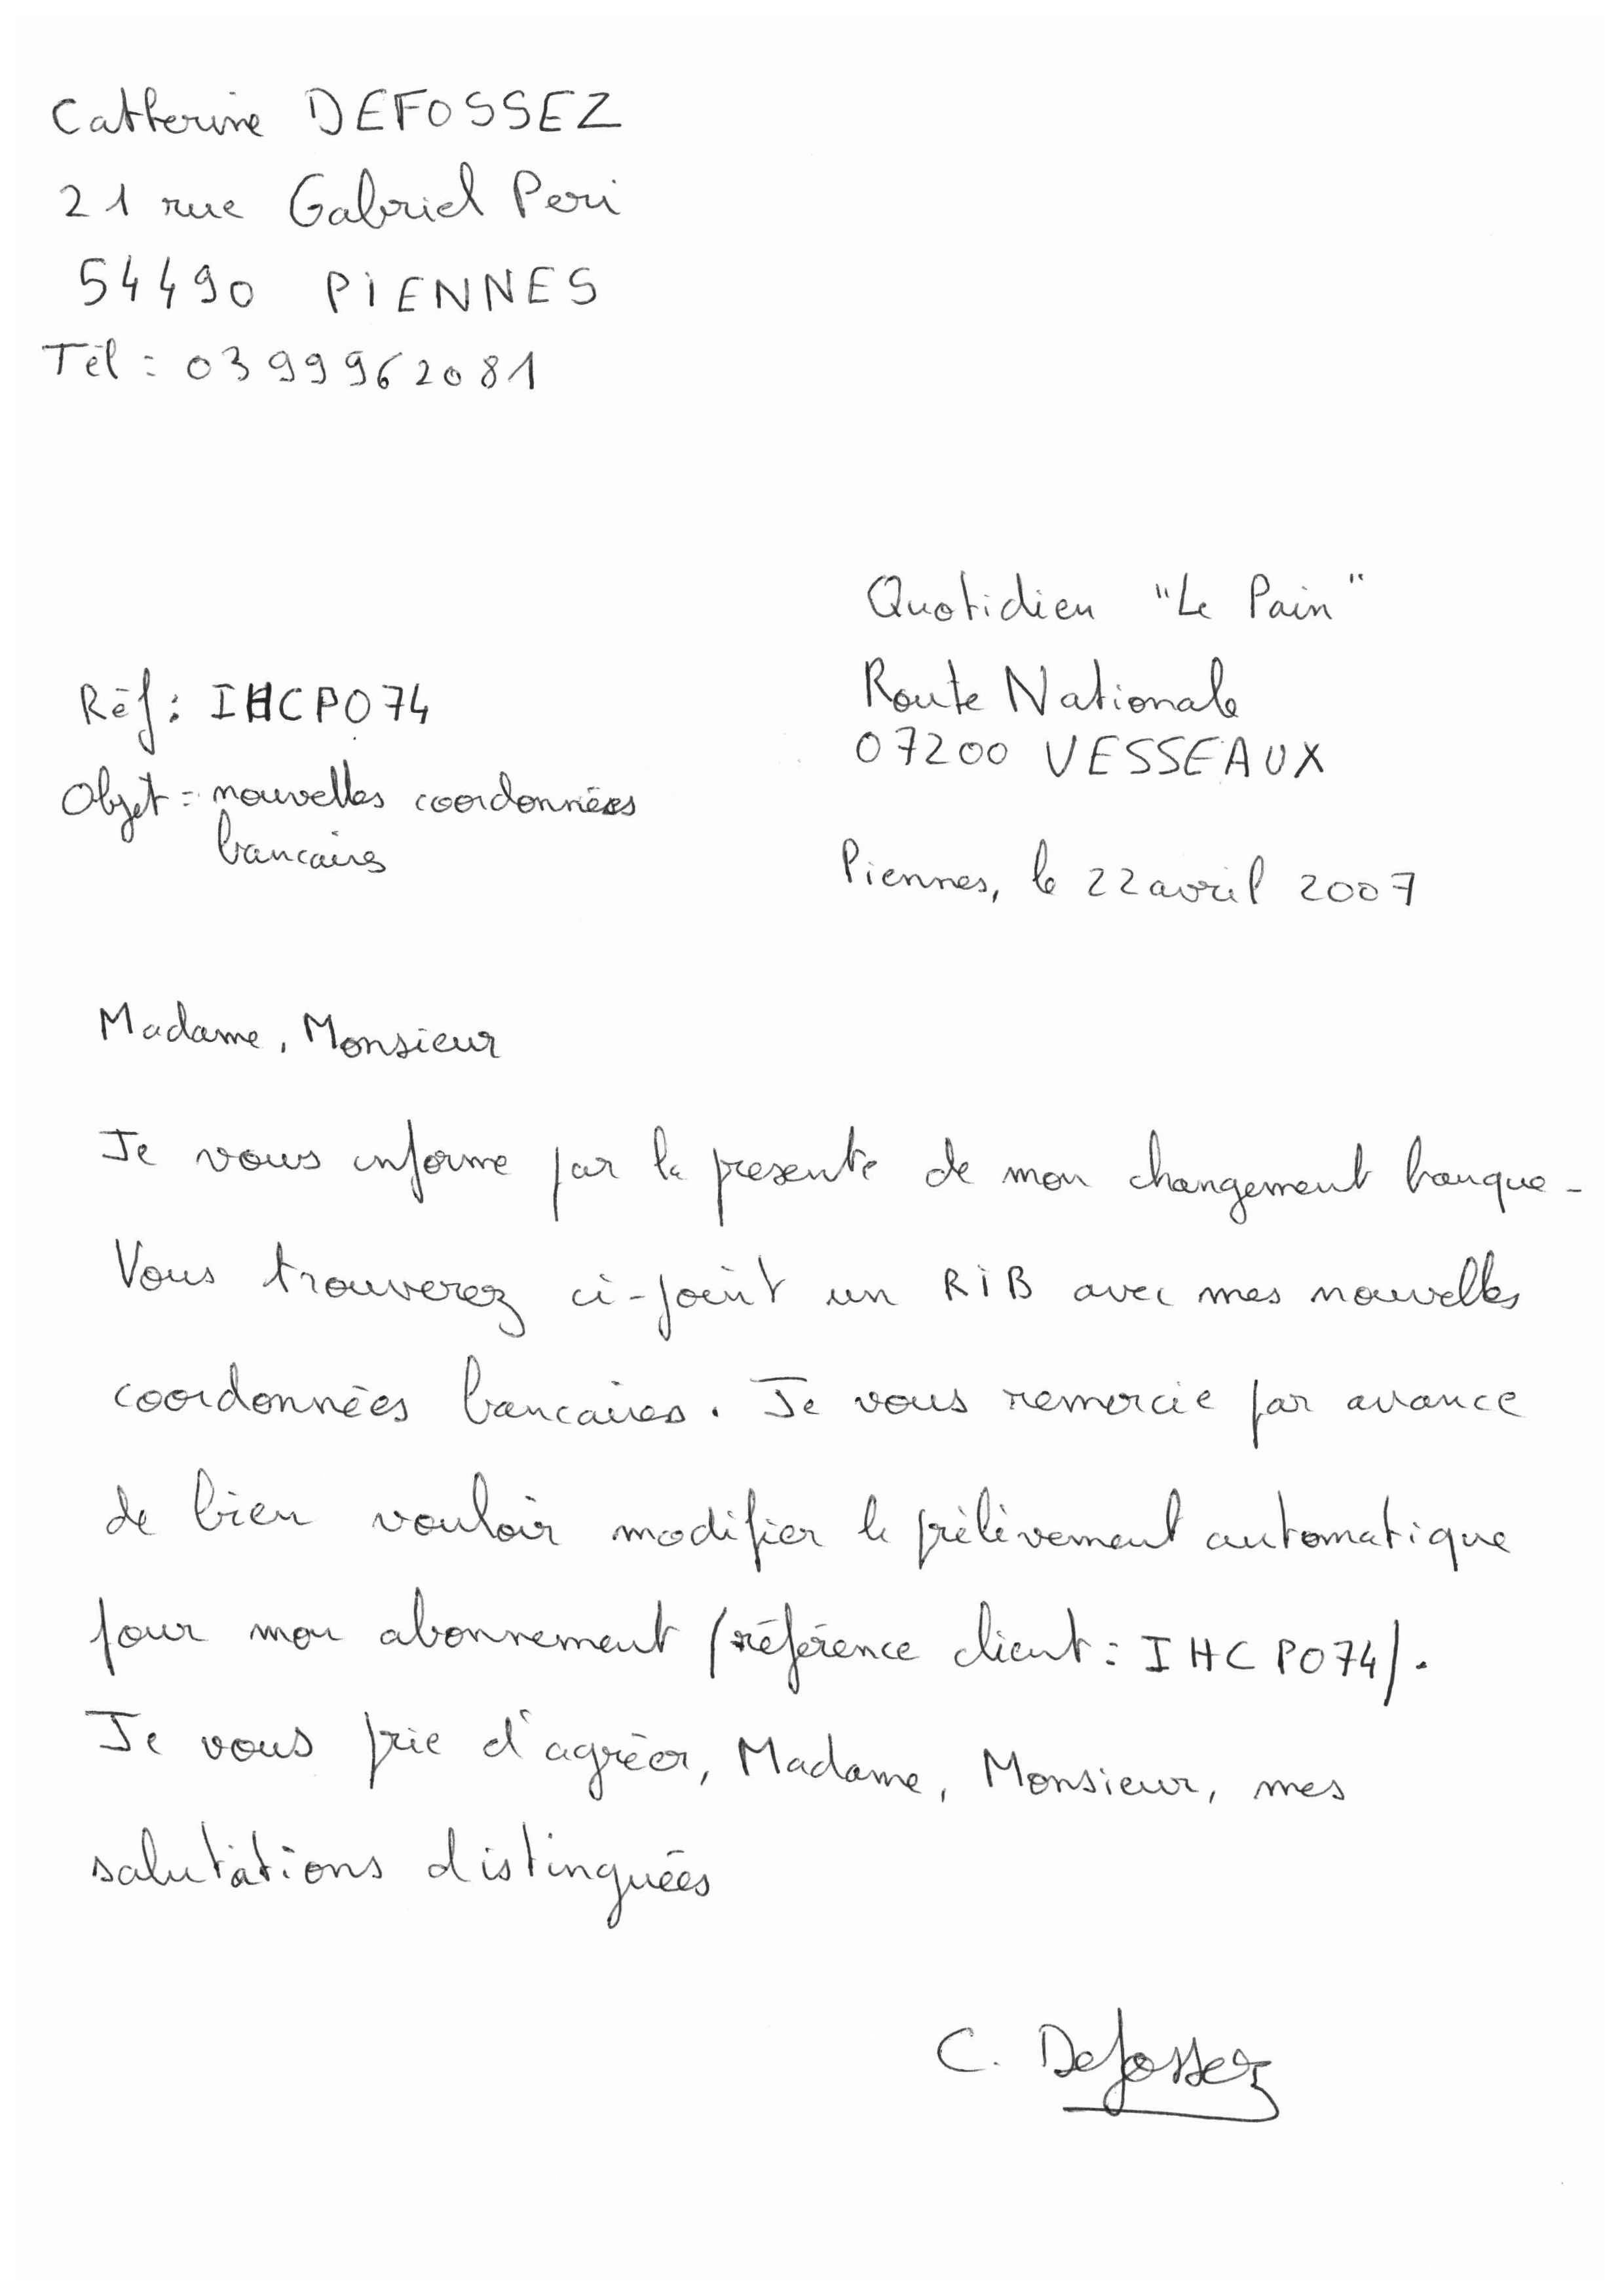 Catherine DEFOSSEZ
21 rue Gabriel Peri
54490 PIENNES
Tél : 0399962081
Quotidien "Le Pain"
Route Nationale
07200 VESSEAUX
Réf : IHCP074
Objet : nouvelles coordonnées
bancaires
Piennes, le 22 avril 2007
Madame, Monsieur
Je vous informe par la presente de mon changement banque.
Vous trouverez ci-joint un RIB avec mes nouvelles
coordonnées bancaires. Je vous remercie par avance
de bien vouloir modifier le prélèvement automatique
pour mon abonnement (référence client : IHCP074).
Je vous prie d'agréer, Madame, Monsieur, mes
salutations distinguées
C. Defossez